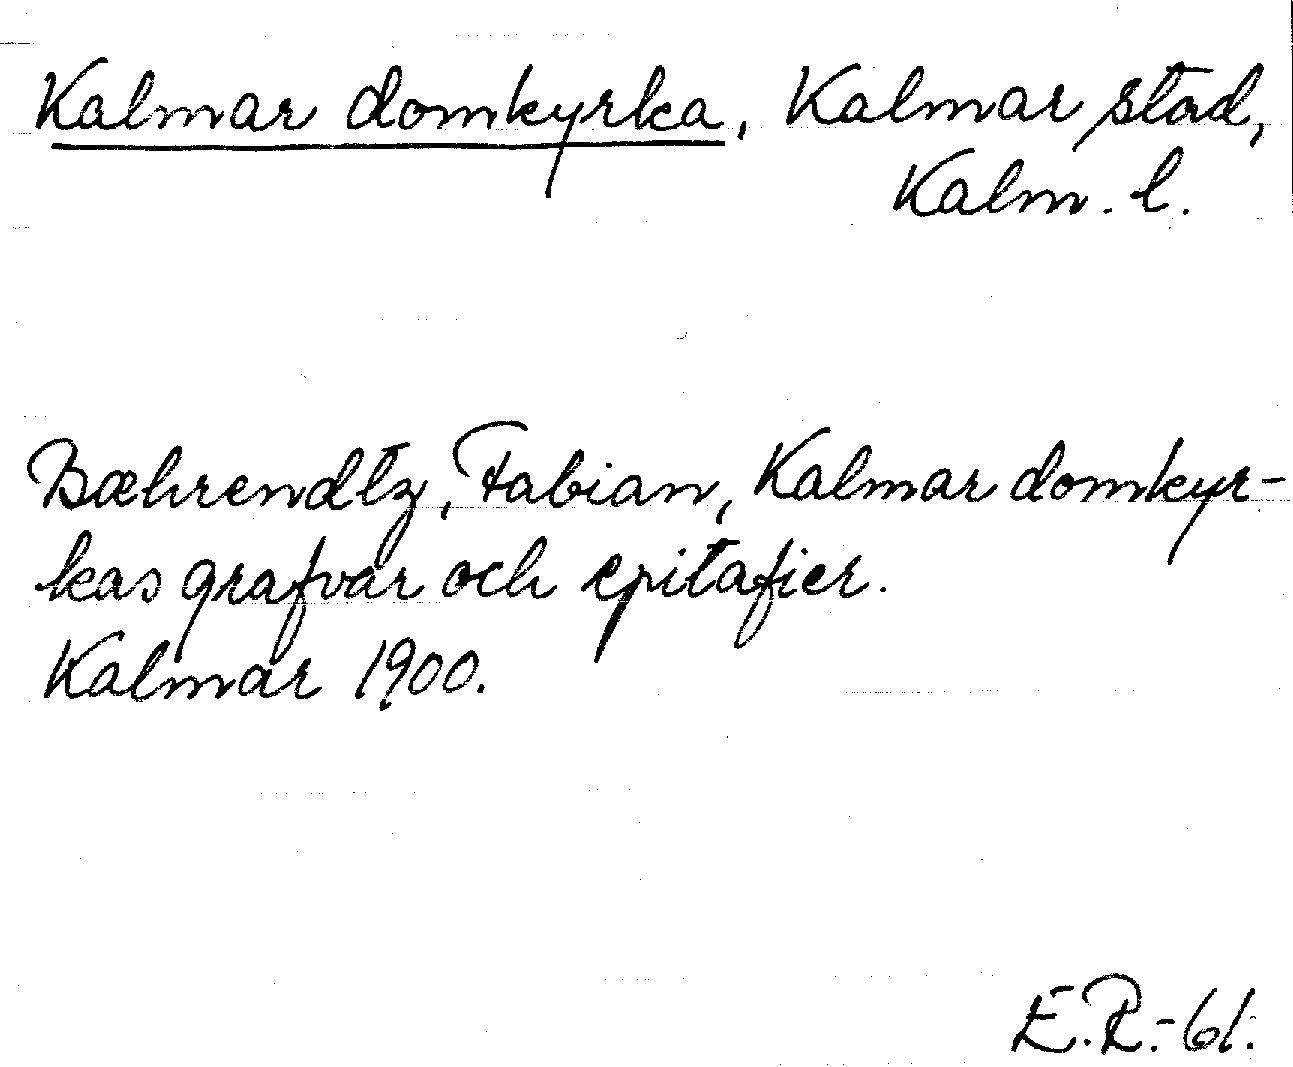 Kalmar domkyrka, Kalmar stad,
Kalm. l.
Bæhrendtz, Fabian, Kalmar domkyr-
kas grafvar och epitafier.
Kalmar 1900.
E.R.-61.